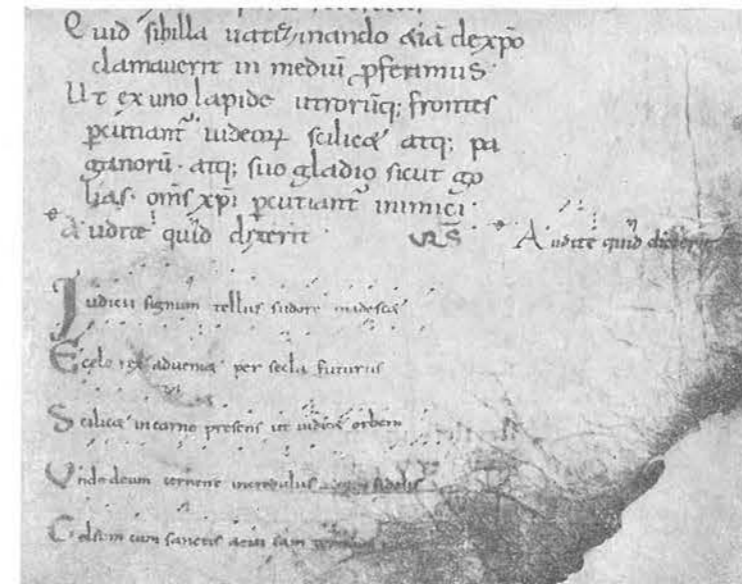 Quid sibilla uaticinando &iā de xp̄o
clamauerit in mediū ꝓferimus·
Ut ex uno lapide utrorūq; frontes
ꝑcutiant᷒ iudeoꝝ scilic& atq; pa
ganorū· atq; suo gladio sicut go
lias· om̄s xp̄i ꝑcutiant᷒ inimici·
Audite quid dixerit VRS̄ Audite quid dixerit
Iudicii signum tellus sudore madesc&
E celo rex adueni& per secla futurus
Scilic& in carne presens ut iudic& orbem
Unde deum cernent incredulus atque fidelis
Celsum cum sanctis aeui iam